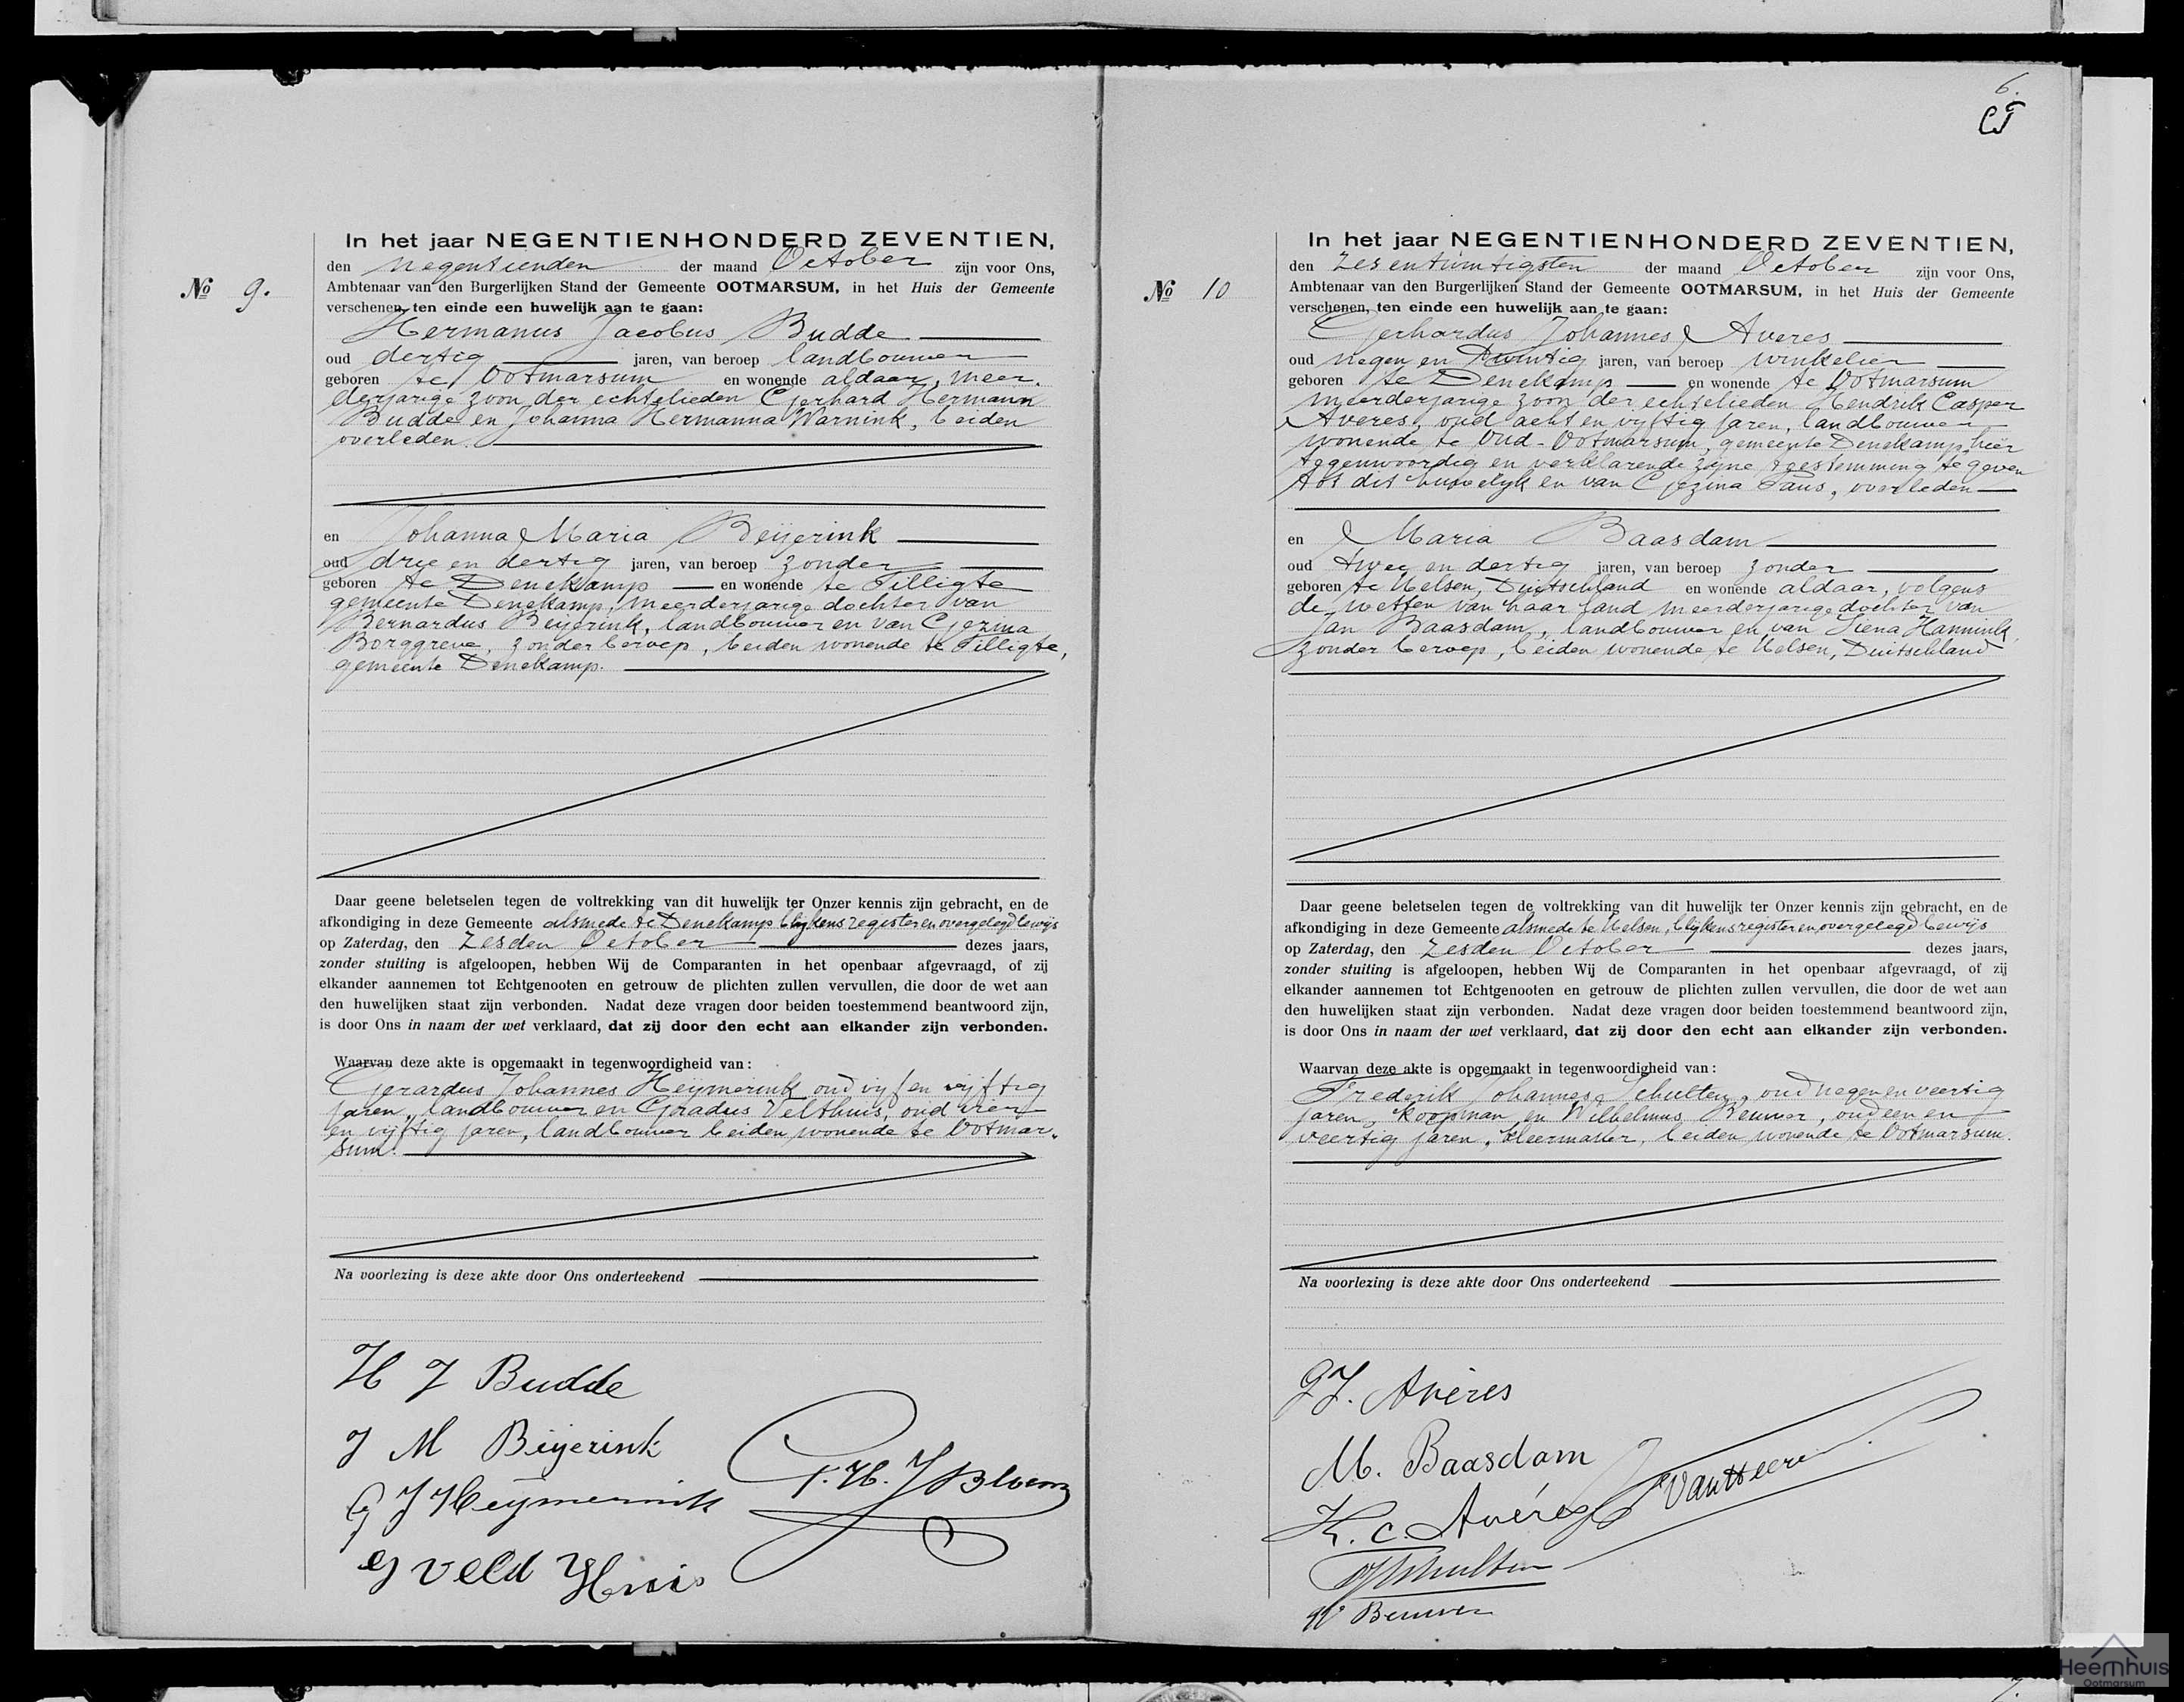 No 9.
In het jaar NEGENTIENHONDERD ZEVENTIEN,
den negentienden der maand October zijn voor Ons,
Ambtenaar van den Burgerlijken Stand der Gemeente OOTMARSUM, in het Huis der Gemeente
verschenen, ten einde een huwelijk aan te gaan:
Hermanus Jacobus Budde
oud dertig jaren, van beroep landbouwer
geboren te Ootmarsum en wonende aldaar, meer-
derjarige zoon der echtelieden Gerhard Hermann
Budde en Johanna Hermanna Warnink, beiden
overleden.
en Johanna Maria Beijerink
oud drie en dertig jaren, van beroep zonder
geboren te Denekamp en wonende te Tilligte
gemeente Denekamp, meerderjarige dochter van
Bernardus Beijerink, landbouwer en van Gezina
Borggreve, zonder beroep, beiden wonende te Tilligte,
gemeente Denekamp.
Daar geene beletselen tegen de voltrekking van dit huwelijk ter Onzer kennis zijn gebracht, en de
afkondiging in deze Gemeente alsmede te Denekamp blijkens register en overgelegd bewijs
op Zaterdag, den zesden October dezes jaars,
zonder stuiting is afgeloopen, hebben Wij de Comparanten in het openbaar afgevraagd, of zij
elkander aannemen tot Echtgenooten en getrouw de plichten zullen vervullen, die door de wet aan
den huwelijken staat zijn verbonden. Nadat deze vragen door beiden toestemmend beantwoord zijn,
is door Ons in naam der wet verklaard, dat zij door den echt aan elkander zijn verbonden.
Waarvan deze akte is opgemaakt in tegenwoordigheid van:
Gerardus Johannes Heijmerink oud vijf en vijftig
jaren, landbouwer en Gradus Velthuis, oud vier
en vijftig jaren, landbouwer beiden wonende te Ootmar-
sum.
Na voorlezing is deze akte door Ons onderteekend
H J Budde
J M Beijerink
G J Heijmerink
G Veld Huis
6.
No 10
In het jaar NEGENTIENHONDERD ZEVENTIEN,
den zesentwintigsten der maand October zijn voor Ons,
Ambtenaar van den Burgerlijken Stand der Gemeente OOTMARSUM, in het Huis der Gemeente
verschenen, ten einde een huwelijk aan te gaan:
Gerhardus Johannes Averes
oud negen en twintig jaren, van beroep winkelier
geboren te Denekamp en wonende te Ootmarsum
meerderjarige zoon der echtelieden Hendrik Casper
Averes, oud acht en vijftig jaren, landbouwer
wonende te Oud-Ootmarsum, gemeente Denekamp, hier
tegenwoordig en verklarende zijne toestemming te geven
tot dit huwelijk en van Gezina Paus, overleden
en Maria Baasdam
oud twee en dertig jaren, van beroep zonder
geboren te Uelsen, Duitschland en wonende aldaar, volgens
de wetten van haar land meerderjarige dochter van
Jan Baasdam, landbouwer en van Siena Hannink,
zonder beroep, beiden wonende te Uelsen, Duitschland
Daar geene beletselen tegen de voltrekking van dit huwelijk ter Onzer kennis zijn gebracht, en de
afkondiging in deze Gemeente alsmede te Uelsen, blijkens register en overgelegd bewijs
op Zaterdag, den zesden October dezes jaars,
zonder stuiting is afgeloopen, hebben Wij de Comparanten in het openbaar afgevraagd, of zij
elkander aannemen tot Echtgenooten en getrouw de plichten zullen vervullen, die door de wet aan
den huwelijken staat zijn verbonden. Nadat deze vragen door beiden toestemmend beantwoord zijn,
is door Ons in naam der wet verklaard, dat zij door den echt aan elkander zijn verbonden.
Waarvan deze akte is opgemaakt in tegenwoordigheid van:
Frederik Johannes Schulten, oud negen en veertig
jaren, koopman en Wilhelmus Beuwer, oud een en
veertig jaren, kleermaker, beiden wonende te Ootmarsum.
Na voorlezing is deze akte door Ons onderteekend
GJ. Avéres
M. Baasdam
H. C. Avéres
W Beuwer
Heemhuis
Ootmarsum